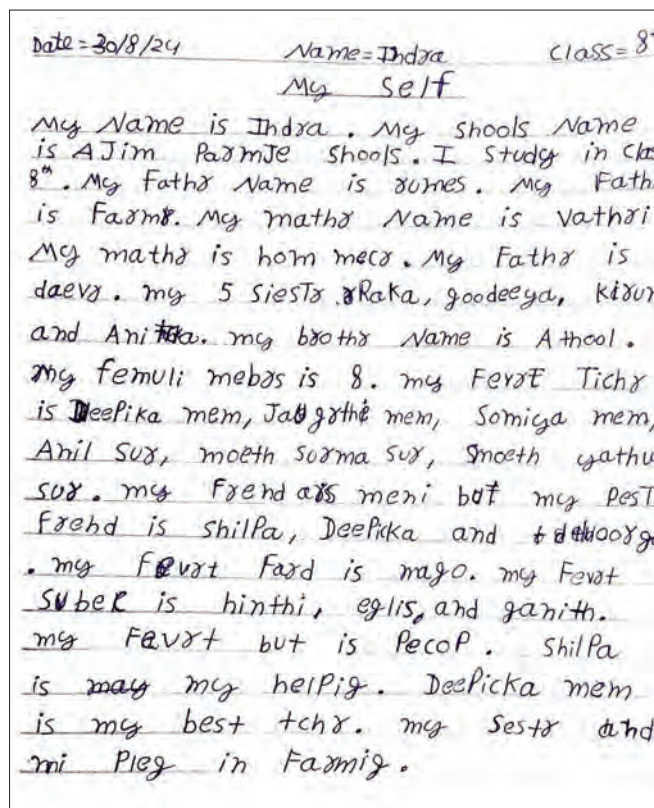 Date = 30/8/24 Name = Indra Class = 8th
My Self
My Name is Indra. My shools Name
is AJim ParmJe shools. I Study in Clas
8th. My Fathr Name is romes. My Fath
is Farmr. My mathr Name is Vathri
My mathr is hom mecr. My Fathr is
daevr. my 5 SiesTr rRaka, goodeeya, Kirun
and Anitka. my brothr Name is Athool.
my femuli mebrs is 8. my Fevrt Tichr
is DeePika mem, Jaugrthi mem, Somiya mem,
Anil Sur, moeth sorma sur, Smoeth yathu
sur. my Frend ars meni but my PesT
Frend is ShilPa, DeePicka and
. my Fevrt Fard is mago. my Fevrt
Suber is hinthi, eglis, and ganith.
my Favrt but is PecoP. ShilPa
is my helPig. DeePicka mem
is my best tchr. my Sestr and
mi Pleg in Farmig.